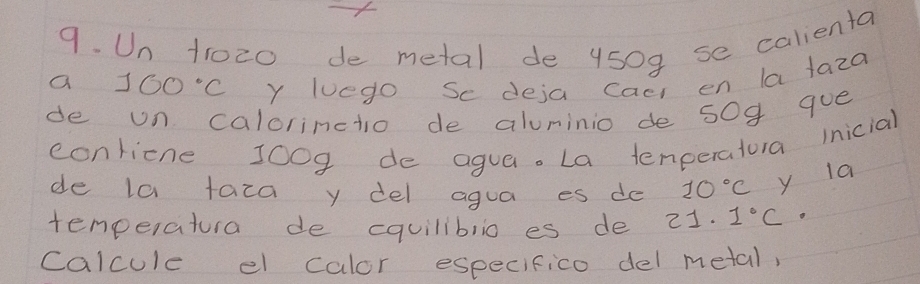 9. Un trozo de metal de 450g se calienta
a 100°C y luego se deja caer en la taza
de un calorimetro de aluminio de 50g que
contiene 100g de agua. La temperatura inicial
de la taza y del agua es de 10°C y la
temperatura de equilibrio es de 21.1°C.
Calcule el calor especifico del metal.